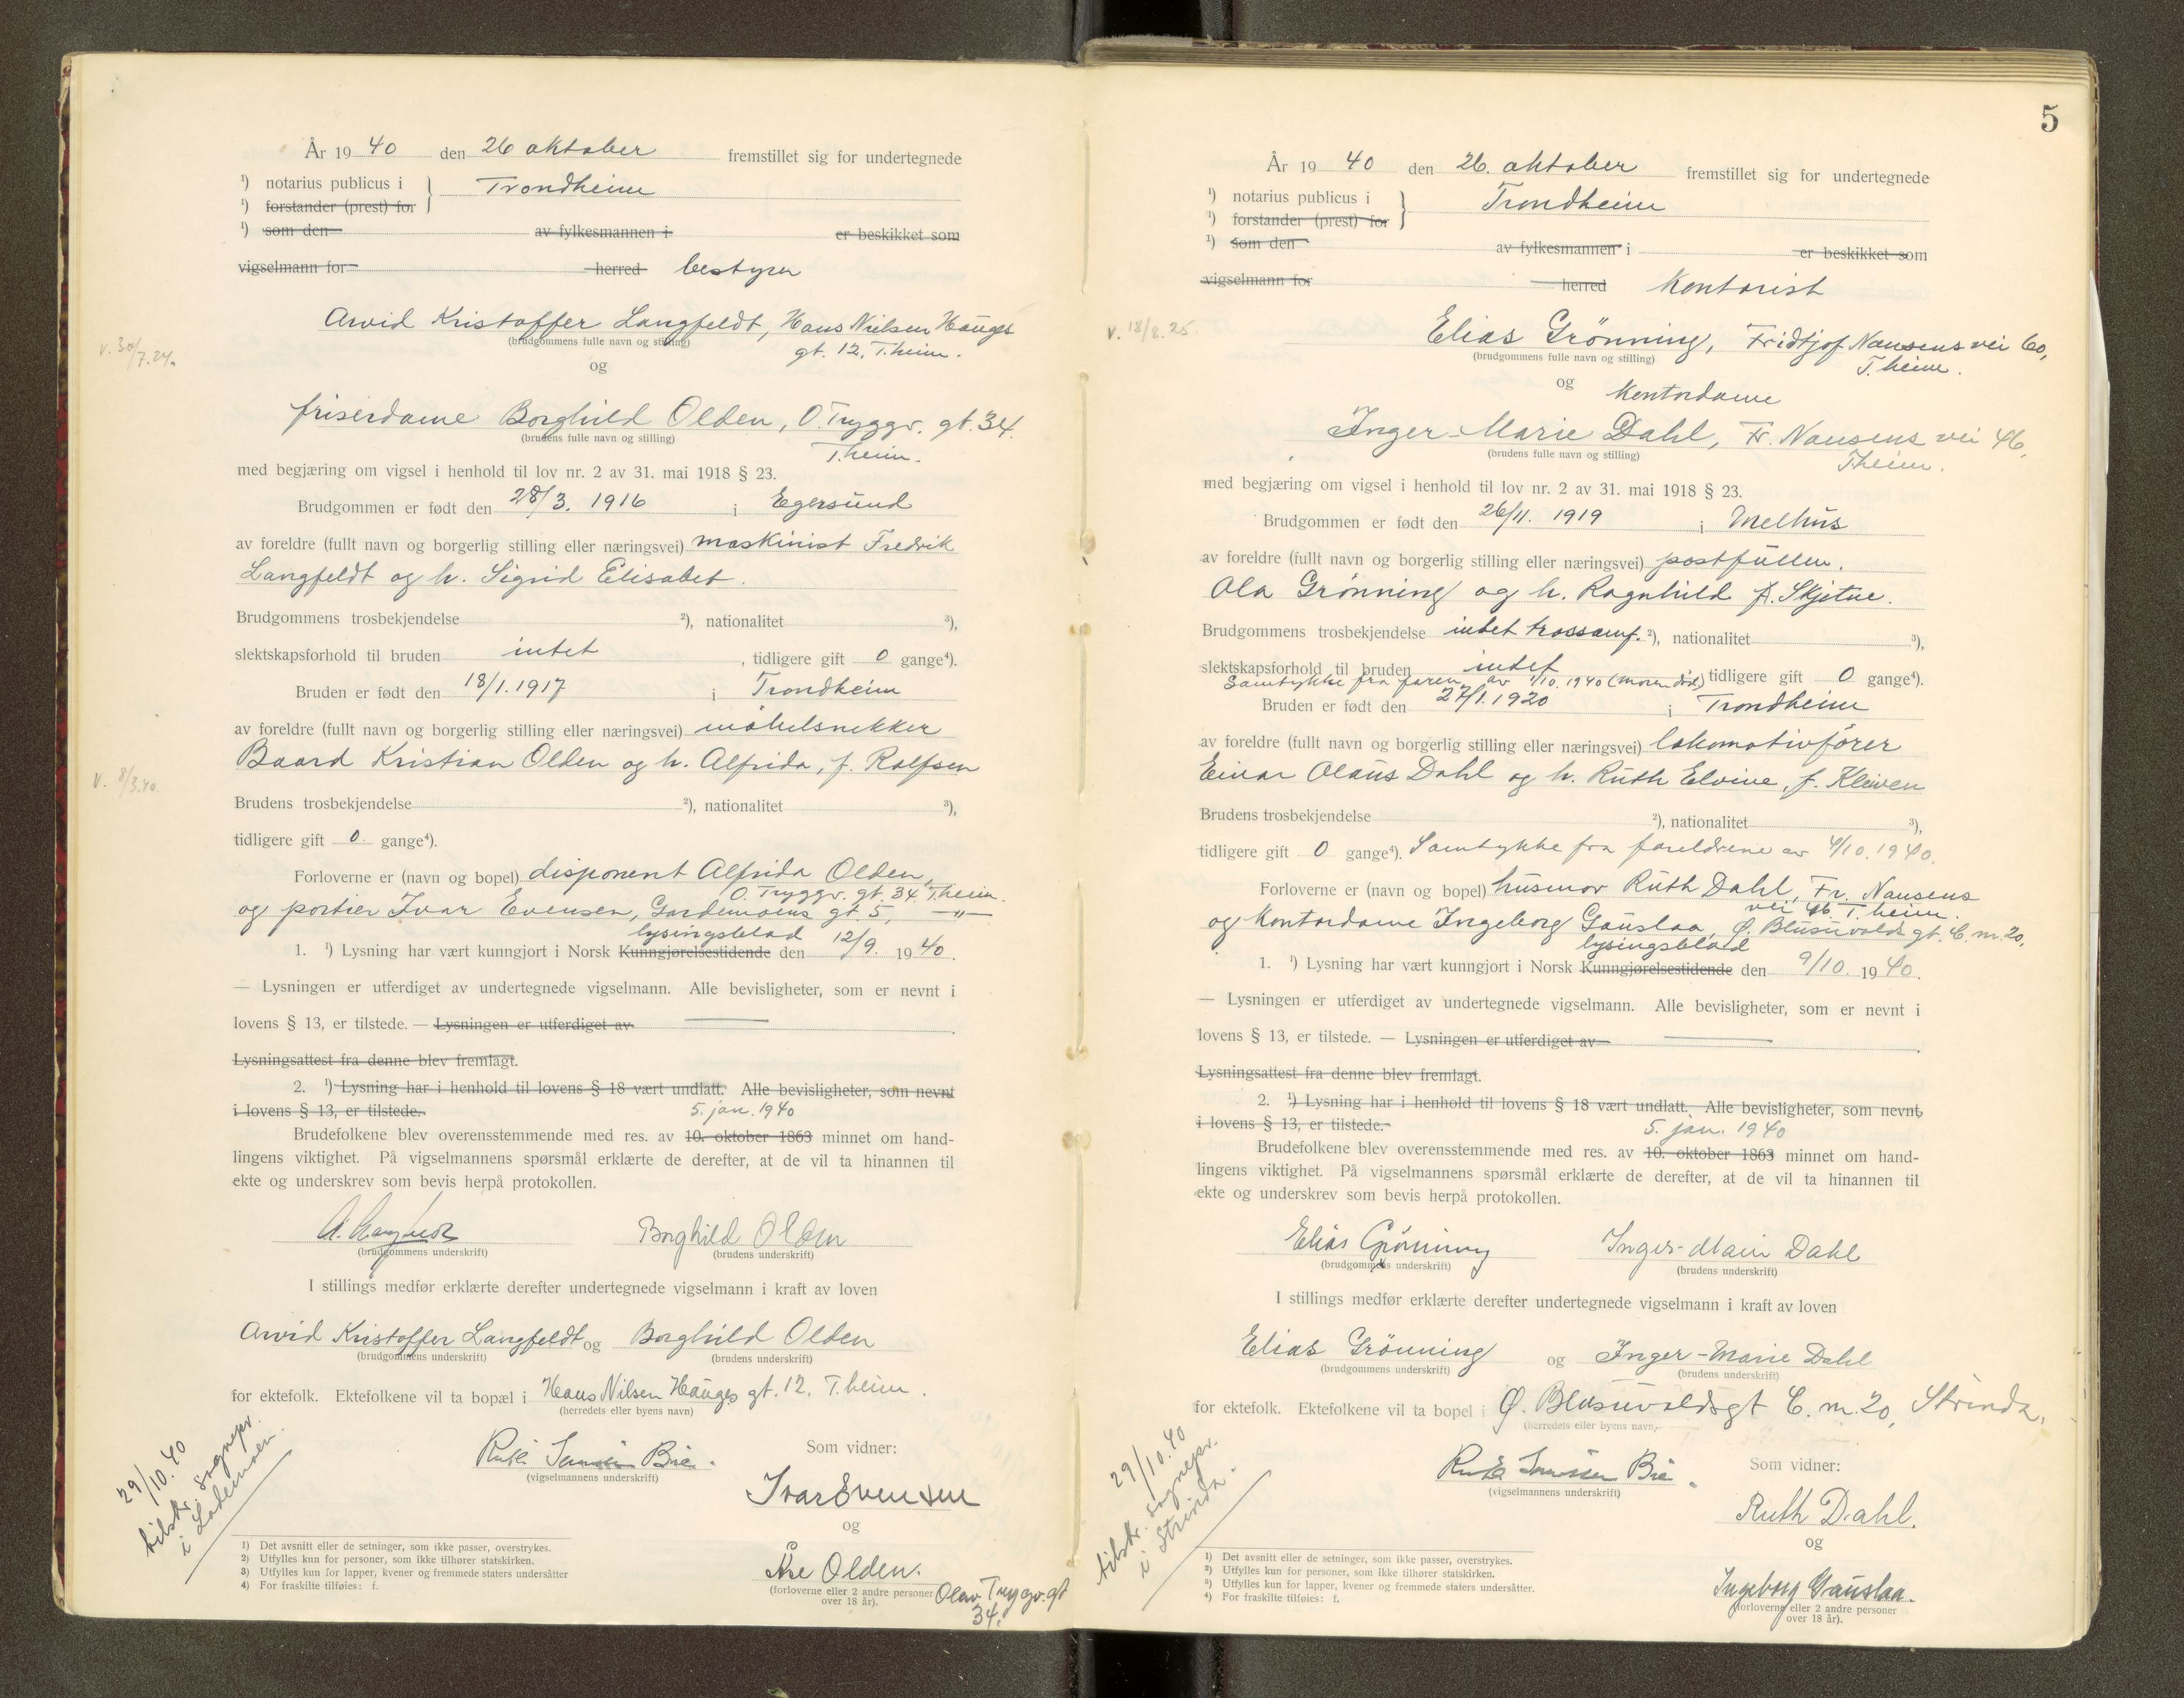 År 19 40 den 26 oktober fremstillet sig for undertegnede
¹) notarius publicus i } Trondheim
¹) forstander (prest) for
¹) som den av fylkesmannen i er beskikket som
vigselmann for herred bestyrer
Arvid Kristoffer Langfeldt, Hans Nielsen Hauges
(brudgommens fulle navn og stilling)
gt. 12, T.heim.
v. 30/7.24.
og
friserdame Borghild Olden, O. Tryggv. gt. 34.
(brudens fulle navn og stilling)
T.heim.
med begjæring om vigsel i henhold til lov nr. 2 av 31. mai 1918 § 23.
Brudgommen er født den 28/3. 1916 i Egersund
av foreldre (fullt navn og borgerlig stilling eller næringsvei) maskinist Fredrik
Langfeldt og h. Sigrid Elisabet.
Brudgommens trosbekjendelse ²), nationalitet ³),
slektskapsforhold til bruden intet, tidligere gift 0 gange⁴).
Bruden er født den 18/1.1917 i Trondheim
av foreldre (fullt navn og borgerlig stilling eller næringsvei) møbelsnekker
Baard Kristian Olden og h. Alfrida, f. Rolfsen
v. 8/3.40
Brudens trosbekjendelse ²), nationalitet ³),
tidligere gift 0. gange⁴).
Forloverne er (navn og bopel) disponent Alfrida Olden,
O. Tryggv. gt. 34 T.heim.
og portier Ivar Evensen, Gardemoens gt. 5, —"—
lysingsblad
1. ¹) Lysning har vært kunngjort i Norsk Kunngjørelsestidende den 12/9. 1940.
— Lysningen er utferdiget av undertegnede vigselmann. Alle bevisligheter, som er nevnt i
lovens § 13, er tilstede. — Lysningen er utferdiget av
Lysningsattest fra denne blev fremlagt.
2. ¹) Lysning har i henhold til lovens § 18 vært undlatt. Alle bevisligheter, som nevnt
i lovens § 13, er tilstede.
5. jan. 1940
Brudefolkene blev overensstemmende med res. av 10. oktober 1863 minnet om hand-
lingens viktighet. På vigselmannens spørsmål erklærte de derefter, at de vil ta hinannen til
ekte og underskrev som bevis herpå protokollen.
A. Langfeldt Borghild Olden
(brudgommens underskrift) (brudens underskrift)
I stillings medfør erklærte derefter undertegnede vigselmann i kraft av loven
Arvid Kristoffer Langfeldt og Borghild Olden
(brudgommens underskrift) (brudens underskrift)
for ektefolk. Ektefolkene vil ta bopæl i Hans Nilsen Hauges gt. 12, T.heim.
(herredets eller byens navn)
29/10.40
tilskr. sognepr.
i Lademoen.
Bie.
(vigselmannens underskrift)
Som vidner:
Ivar Evensen
og
Åse Olden.
(forloverne eller 2 andre personer
over 18 år).
Olav Tryggv. gt
34.
1) Det avsnitt eller de setninger, som ikke passer, overstrykes.
2) Utfylles kun for personer, som ikke tilhører statskirken.
3) Utfylles kun for lapper, kvener og fremmede staters undersåtter
4) For fraskilte tilføies: f.
5
År 19 40 den 26. oktober fremstillet sig for undertegnede
¹) notarius publicus i } Trondheim
¹) forstander (prest) for
¹) som den av fylkesmannen i er beskikket som
vigselmann for herred Kontorist
v. 18/8.25.
Elias Grönning, Fridtjof Nansens vei 60,
(brudgommens fulle navn og stilling)
T.heim.
og Kontordame
Inger-Marie Dahl, Fr. Nansens vei 46,
(brudens fulle navn og stilling)
T.heim.
med begjæring om vigsel i henhold til lov nr. 2 av 31. mai 1918 § 23.
Brudgommen er født den 26/11. 1919 i Melhus
av foreldre (fullt navn og borgerlig stilling eller næringsvei) postfullm.
Ola Grönning og h. Ragnhild f. Skjetne.
Brudgommens trosbekjendelse intet trossamf. ²), nationalitet ³),
slektskapsforhold til bruden intet tidligere gift 0 gange⁴).
Samtykke fra faren av 1/10. 1940 (moren död)
Bruden er født den 27/1.1920 i Trondheim
av foreldre (fullt navn og borgerlig stilling eller næringsvei) lokomotivförer
Einar Olaus Dahl og h. Ruth Elvine, f. Kleven
Brudens trosbekjendelse ²), nationalitet ³),
tidligere gift 0 gange⁴). Samtykke fra foreldrene av 4/10. 1940.
Forloverne er (navn og bopel) husmor Ruth Dahl, Fr. Nansens
vei 46. T.heim.
og Kontordame Ingeborg Gauslaa, Ø. Blusuvoldsgt. C. m. 20,
lysingsblad
1. ¹) Lysning har vært kunngjort i Norsk Kunngjørelsestidende den 9/10. 1940.
— Lysningen er utferdiget av undertegnede vigselmann. Alle bevisligheter, som er nevnt i
lovens § 13, er tilstede. — Lysningen er utferdiget av
Lysningsattest fra denne blev fremlagt.
2. ¹) Lysning har i henhold til lovens § 18 vært undlatt. Alle bevisligheter, som nevnt,
i lovens § 13, er tilstede.
5. jan. 1940
Brudefolkene blev overensstemmende med res. av 10. oktober 1863 minnet om hand-
lingens viktighet. På vigselmannens spørsmål erklærte de derefter, at de vil ta hinannen til
ekte og underskrev som bevis herpå protokollen.
Elias Grönning Inger-Marie Dahl
(brudgommens underskrift) (brudens underskrift)
I stillings medfør erklærte derefter undertegnede vigselmann i kraft av loven
Elias Grönning og Inger-Marie Dahl
(brudgommens underskrift) (brudens underskrift)
for ektefolk. Ektefolkene vil ta bopel i Ø. Blusuvoldsgt C. m. 20, Strinda.
(herredets eller byens navn)
29/10.40
tilskr. sognepr.
i Strinda.
Bie.
(vigselmannens underskrift)
Som vidner:
Ruth Dahl.
og
Ingeborg Gauslaa.
(forloverne eller 2 andre personer
over 18 år).
1) Det avsnitt eller de setninger, som ikke passer, overstrykes.
2) Utfylles kun for personer, som ikke tilhører statskirken.
3) Utfylles kun for lapper, kvener og fremmede staters undersåtter.
4) For fraskilte tilføies: f.